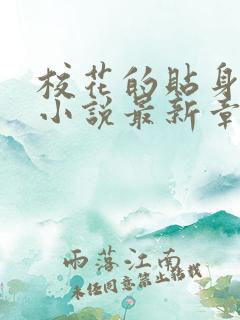 校花的貼身
小說最新章
雨落江南
未经同意禁止转载